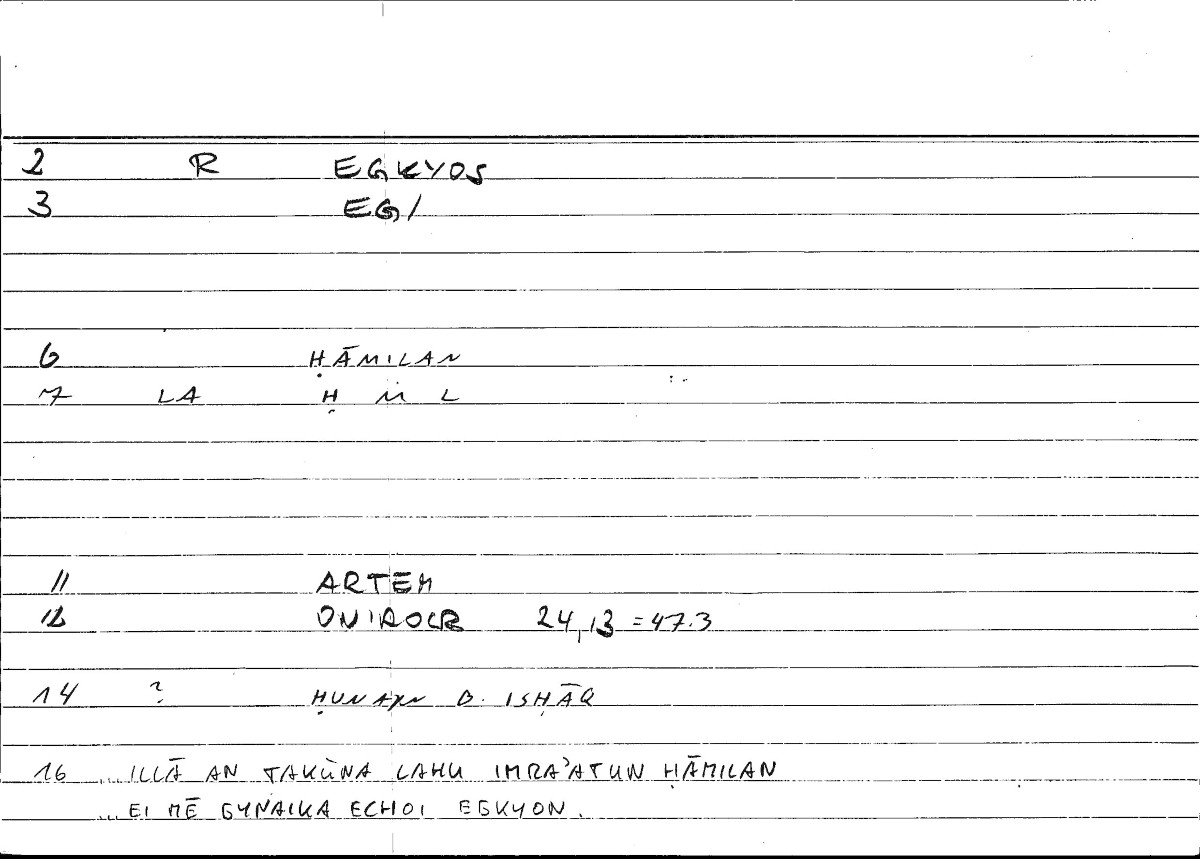 2 R EGKYOS
3 EG/
6 ḤĀMILAN
7 LA Ḥ M L
11 ARTEM
12 ONIROCR 24,13 = 47.3
14 ? ḤUNAYN B. ISḤĀQ
16 ...ILLĀ AN TAKŪNA LAHU IMRA'ATUN ḤĀMILAN
...EI MĒ GYNAIKA ECHOI EGKYON.